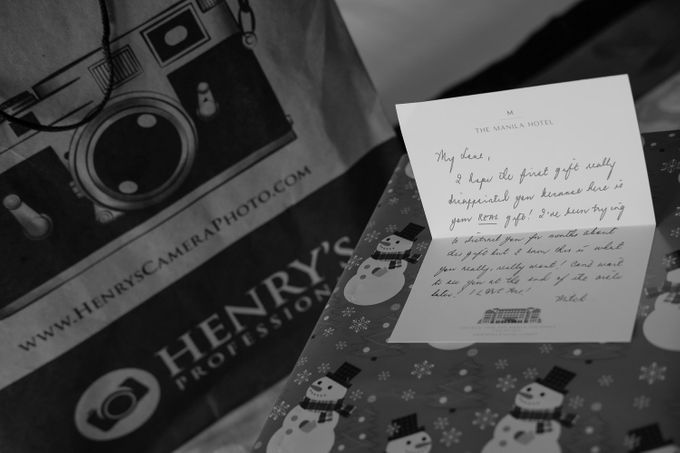 www.HenrysCameraPhoto.com
HENRY'S
PROFESSION
M
THE MANILA HOTEL
My Love,
I hope the first gift really
disappointed you because here is
your REAL gift! I've been trying
to distract you for months about
this gift but I know this is what
you really, really want! Cant wait
to see you at the end of the aisle
later! I LOVE YOU!
Mitch